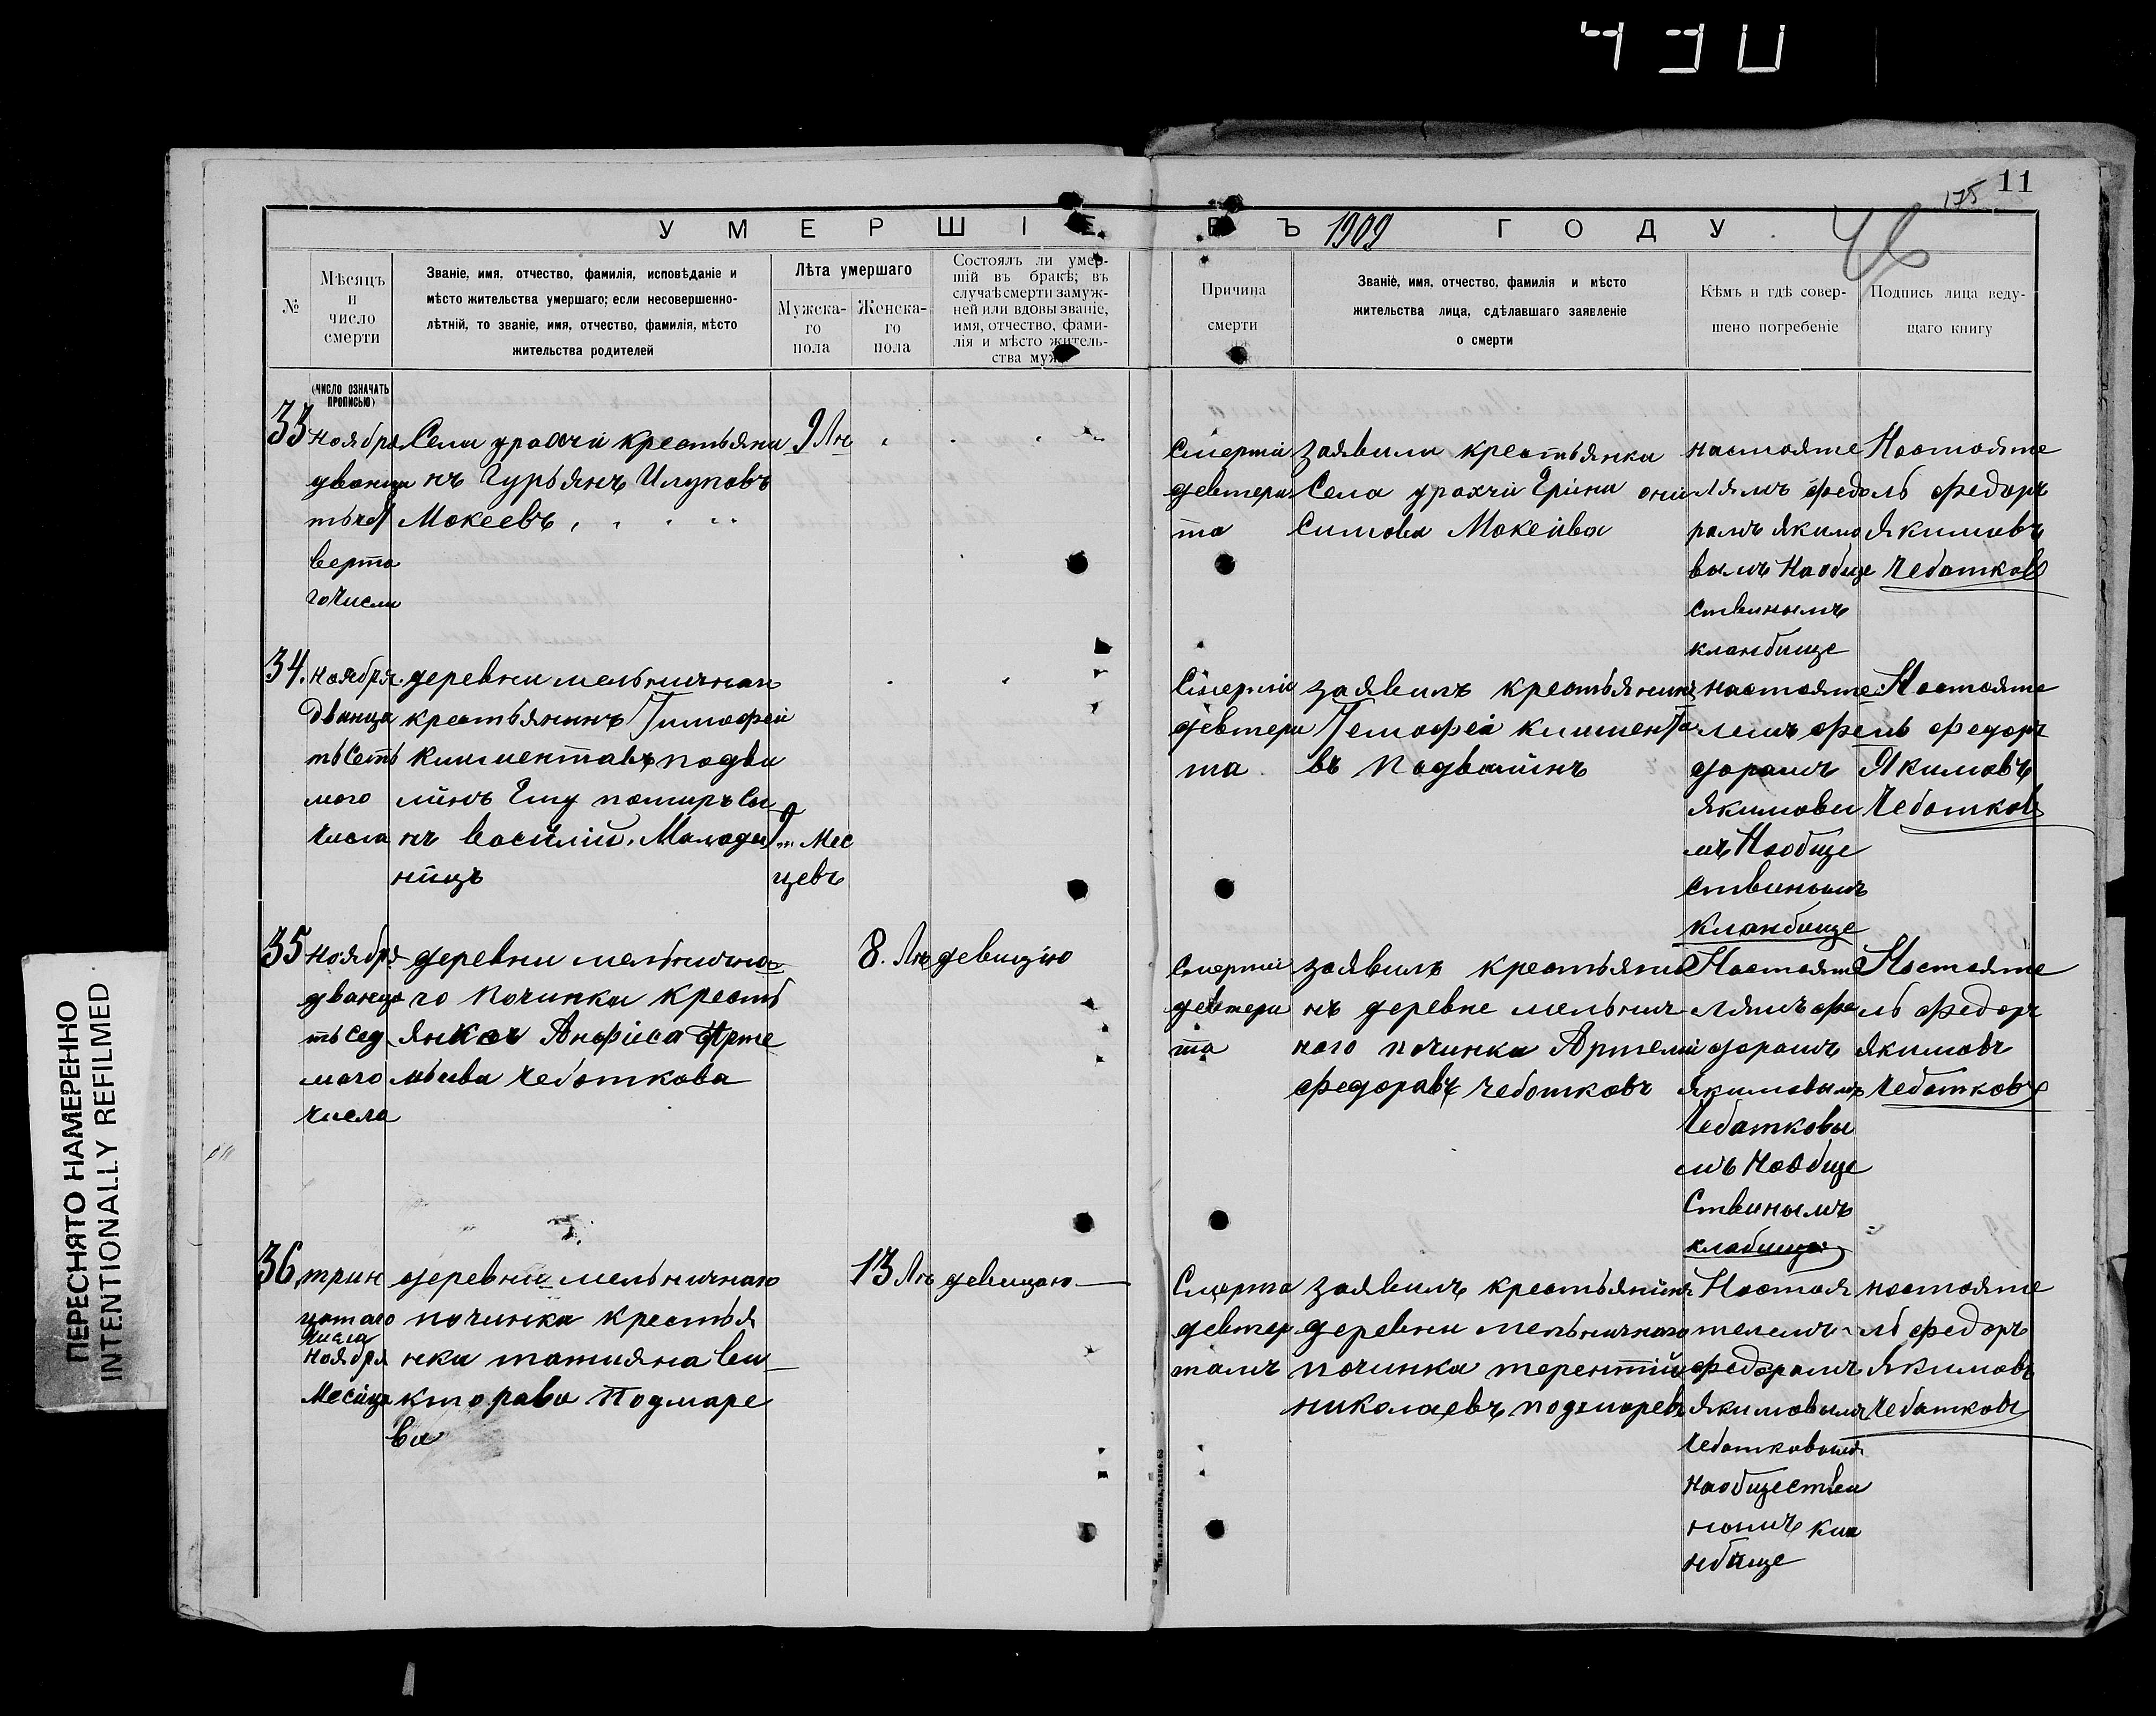 430
11
175
46
УМЕРШІЕ ВЪ 1909 ГОДУ.
№
Мѣсяцъ
и
число
смерти
Званіе, имя, отчество, фамилія, исповѣданіе и
мѣсто жительства умершаго; если несовершенно-
лѣтній, то званіе, имя, отчество, фамилія, мѣсто
жительства родителей
Лѣта умершаго
Мужска-
го
пола
Женска-
го
пола
Состоялъ ли умер-
шій въ бракѣ; въ
случаѣ смерти замуж-
ней или вдовы званіе,
имя, отчество, фами-
лія и мѣсто житель-
ства мужа
Причина
смерти
Званіе, имя, отчество, фамилія и мѣсто
жительства лица, сдѣлавшаго заявленіе
о смерти
Кѣмъ и гдѣ совер-
шено погребеніе
Подпись лица веду-
щаго книгу
(ЧИСЛО ОЗНАЧАТЬ
ПРОПИСЬЮ)
33
ноября
дванца
ть чет
верто
го числа
Села урахчи крестьяни
нъ Гурьянъ
Мокеевъ
9 Лт
Смертiи
девтери
та
заявила крестьянка
Села урахчи
Симова Мокеiва
настояте
лямъ Федо
рамъ якимо
вымъ Наобще
ствинымъ
кланбище
Настояте
ль Федоръ
Якимовъ
Чеботков
34.
ноября
дванца
ть семь
мого
числа
деревни мельничнаго
крестьянинъ Тимофей
подва
линъ Ему помиръ сы
нъ василiй. Малоде
нiцъ
9 Мес
цевъ
Смертiи
девтери
та
заявилъ крестьянинъ
Темофей климента
въ Подвалинъ
настояте
лемъ Фе
дорамъ
якимовы
мъ Наобще
ствинымъ
кланбище
Настояте
ль Федоръ
Якимовъ
Чеботков
35
ноября
дванца
ть сед
мого
числа
деревни мельнично
го починка крестъ
янкаи Анфiса Арте
мьева Чеботкова
8. Лт
девицiю
Смертiи
девтери
та
заявилъ крестьяни
нъ деревне мельнич
ного починка Артемiи
Федоравъ Чеботковъ
Настояте
лямъ Фе
дорамъ
якимовымъ
Чебатковы
мъ Наобще
ствинымъ
клабище
Настояте
ль Федоръ
якимовъ
Чеботковъ
36
трин
цотаго
числа
ноября
месiца
деревни мельничнаго
починка крестья
нка татияна ви
кторава Подмаре
ва
13 Лт
девицаю
Смерта
девтер
тамъ
заявилъ крестьянинъ
деревни мельничного
починка терентiй
николаевъ подмаревъ
Настоя
телемъ
Федорамъ
Якимовымъ
Чеботковымъ
наобществен
номъ кла
нбище
настояте
ль Федоръ
Якимовъ
Чебатковъ
ПЕРЕСНЯТО НАМЕРЕННО
INTENTIONALLY REFILMED